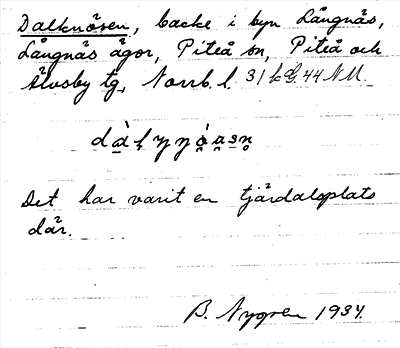 Dalknösen, backe i byn Långnäs,
Långnäs ägor, Piteå sn, Piteå och
Älvsby tg, Norrb. l.
Det har varit en tjärdalsplats
där.
B. Nygren 1934.